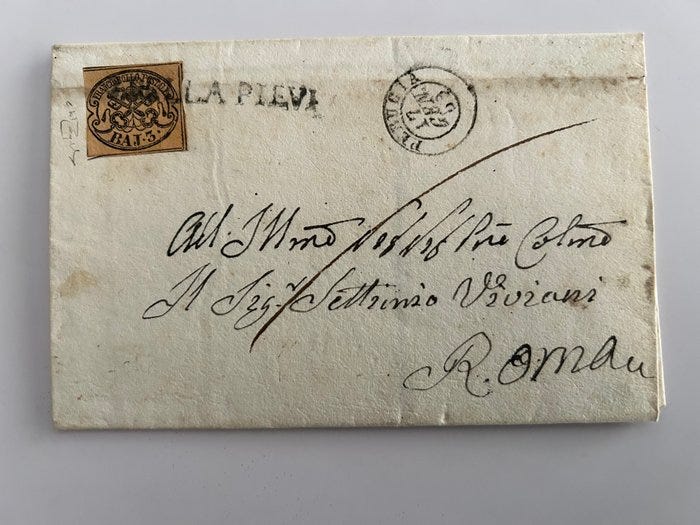 FRANCO BOLLO POSTALE
BAJ. 3.
LLA PIEVE
PERUGIA
17
GEN
63
All. Illmo
Colmo
Il Sigr. Settimio Viviani
Roma